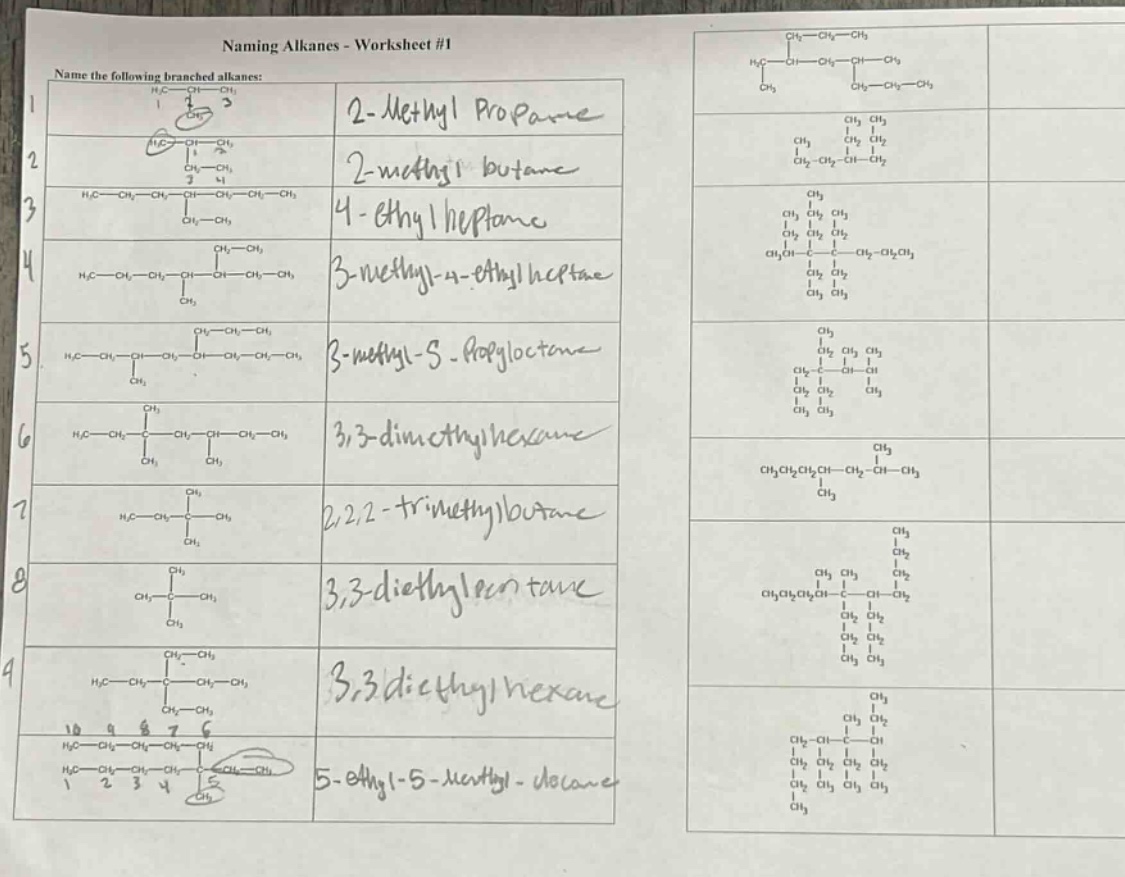 Naming Alkanes - Worksheet #1
Name the following branched alkanes:
1
H₃C—CH—CH₃
1 2 3
CH₃
2-Methyl Propane
2
H₃C—CH—CH₂
1 2
CH₂—CH₃
3 4
2-methyl butane
3
H₃C—CH₂—CH₂—CH—CH₂—CH₂—CH₃
CH₂—CH₃
4-ethylheptane
4
CH₂—CH₃
H₃C—CH₂—CH₂—CH—CH—CH₂—CH₃
CH₃
3-methyl-4-ethylheptane
5
CH₂—CH₂—CH₃
H₃C—CH₂—CH—CH₂—CH—CH₂—CH₂—CH₃
CH₃
3-methyl-5-Propyloctane
6
CH₃
H₃C—CH₂—C—CH₂—CH—CH₂—CH₃
CH₃ CH₃
3,3-dimethylhexane
7
CH₃
H₃C—CH₂—C—CH₃
CH₃
2,2,2-trimethylbutane
8
CH₃
CH₃—C—CH₃
CH₃
3,3-diethylpentane
9
CH₂—CH₃
H₃C—CH₂—C—CH₂—CH₃
CH₂—CH₃
3,3 diethylhexane
10 9 8 7 6
H₃C—CH₂—CH₂—CH₂—CH₂
H₃C—CH₂—CH₂—CH₂—C—CH₂—CH₃
1 2 3 4 5
CH₃
5-ethyl-5-Menthyl-decane
CH₂—CH₂—CH₃
H₂C—CH—CH₂—CH—CH₃
CH₃ CH₂—CH₂—CH₃
CH₃ CH₃
CH₃ CH₂ CH₂
CH₂-CH₂-CH—CH₂
CH₃
CH₃ CH₂ CH₃
CH₂ CH₂ CH₂
CH₃CH—C—C—CH₂-CH₂CH₃
CH₂ CH₂
CH₃ CH₃
CH₃
CH₂ CH₃ CH₃
CH₂-C—CH—CH
CH₂ CH₂ CH₃
CH₃ CH₃
CH₃
CH₃CH₂CH₂CH—CH₂-CH—CH₃
CH₃
CH₃
CH₂
CH₃ CH₃ CH₂
CH₃CH₂CH₂CH—C—CH—CH₂
CH₂ CH₂
CH₂ CH₂
CH₃ CH₃
CH₃
CH₃ CH₂
CH₂-CH—C—CH
CH₂ CH₂ CH₂ CH₂
CH₂ CH₃ CH₃ CH₃
CH₃